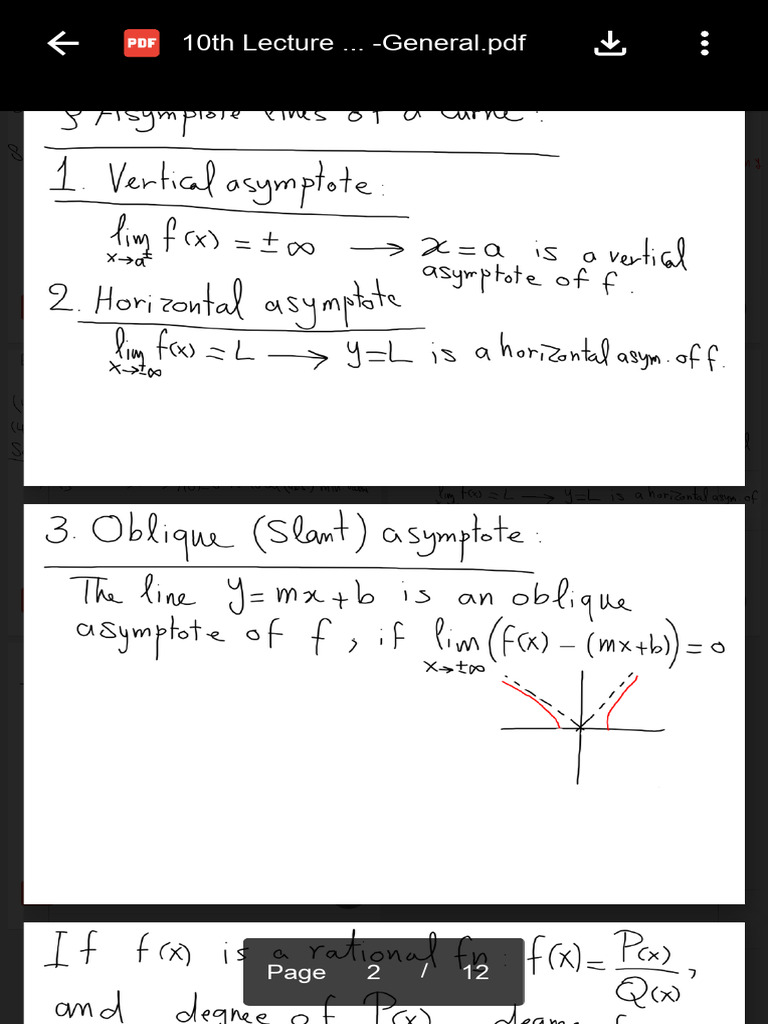 PDF 10th Lecture ... -General.pdf
§ Asymptote lines of a curve:
1. Vertical asymptote:
lim f(x) = ±∞ → x=a is a vertical
x→a± asymptote of f.
2. Horizontal asymptote
lim f(x) = L → y=L is a horizontal asym. of f.
x→±∞
3. Oblique (Slant) asymptote:
The line y=mx+b is an oblique
asymptote of f, if lim (f(x) - (mx+b)) = 0
x→±∞
If f(x) is a rational fn: f(x)= P(x)/Q(x),
Page 2 / 12
and degree of P(x)